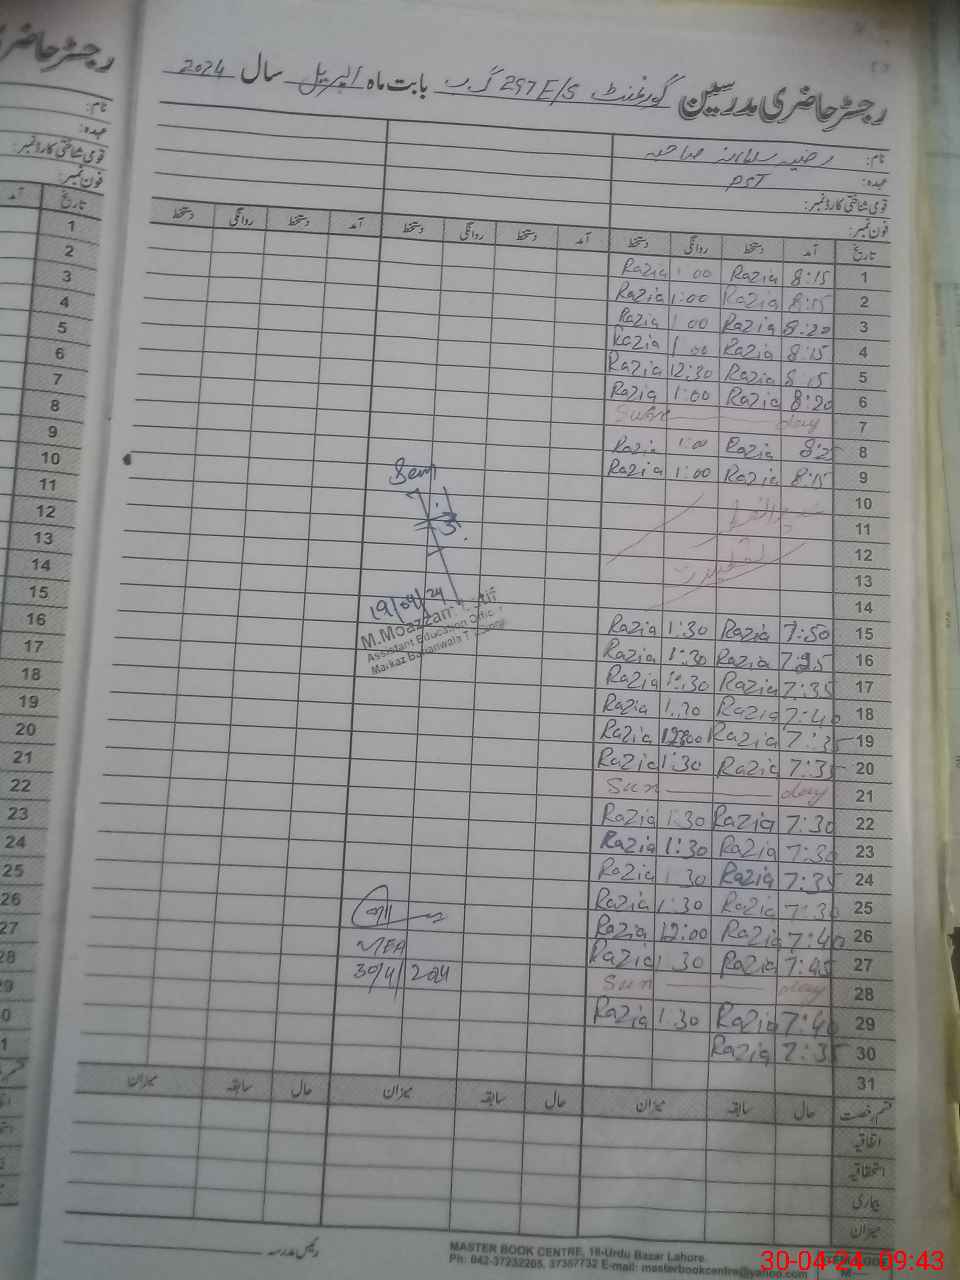 رجسٹر حاضری مدرسین گورنمنٹ 297 E/S گ ب بابت ماہ اپریل سال 2024
نام: رضیہ سلطانہ صاحبہ
عہدہ: PST
قومی شناختی کارڈ نمبر:
فون نمبر:
تاریخ آمد دستخط روانگی دستخط آمد دستخط روانگی دستخط آمد دستخط روانگی دستخط
1 8:15 Razia 1:00 Razia
2 8:15 Razia 1:00 Razia
3 8:20 Razia 1 00 Razia
4 8:15 Razia 1 00 Razia
5 8:15 Razia 12:30 Razia
6 8:20 Razia 1:00 Razia
7 Sun day
8 8:25 Razia 1:00 Razia
9 8:15 Razia 1:00 Razia
10 عید الفطر
11
12 تعطیلات
13
14
15 7:50 Razia 1:30 Razia
16 Razia 1:30 Razia
17 7:35 Razia 1:30 Razia
18 7:40 Razia 1:30 Razia
19 7:35 Razia Razia
20 7:35 Razia 1:30 Razia
21 Sun day
22 7:30 Razia 1:30 Razia
23 7:30 Razia 1:30 Razia
24 7:35 Razia 1 30 Razia
25 7:30 Razia 1:30 Razia
26 7:40 Razia 12:00 Razia
27 7:45 Razia 1 30 Razia
28 Sun day
29 7:40 Razia 1:30 Razia
30 7:35 Razia
31
19/04/24
M.Moazzam
Assistant Education Officer
Markaz
MEA
30/4/2024
قسم رخصت حال سابقہ میزان حال سابقہ میزان حال سابقہ میزان
اتفاقیہ
استحقاقیہ
بیماری
میزان
رئیس مدرسہ
MASTER BOOK CENTRE, 16-Urdu Bazar Lahore.
Ph: 042-37232205, 37357732 E-mail: masterbookcentre@yahoo.com
30-04-24 09:43
رجسٹر حاضری
نام:
عہدہ:
قومی شناختی کارڈ نمبر:
فون نمبر:
تاریخ آمد
1
2
3
4
5
6
7
8
9
10
11
12
13
14
15
16
17
18
19
20
21
22
23
24
25
26
27
28